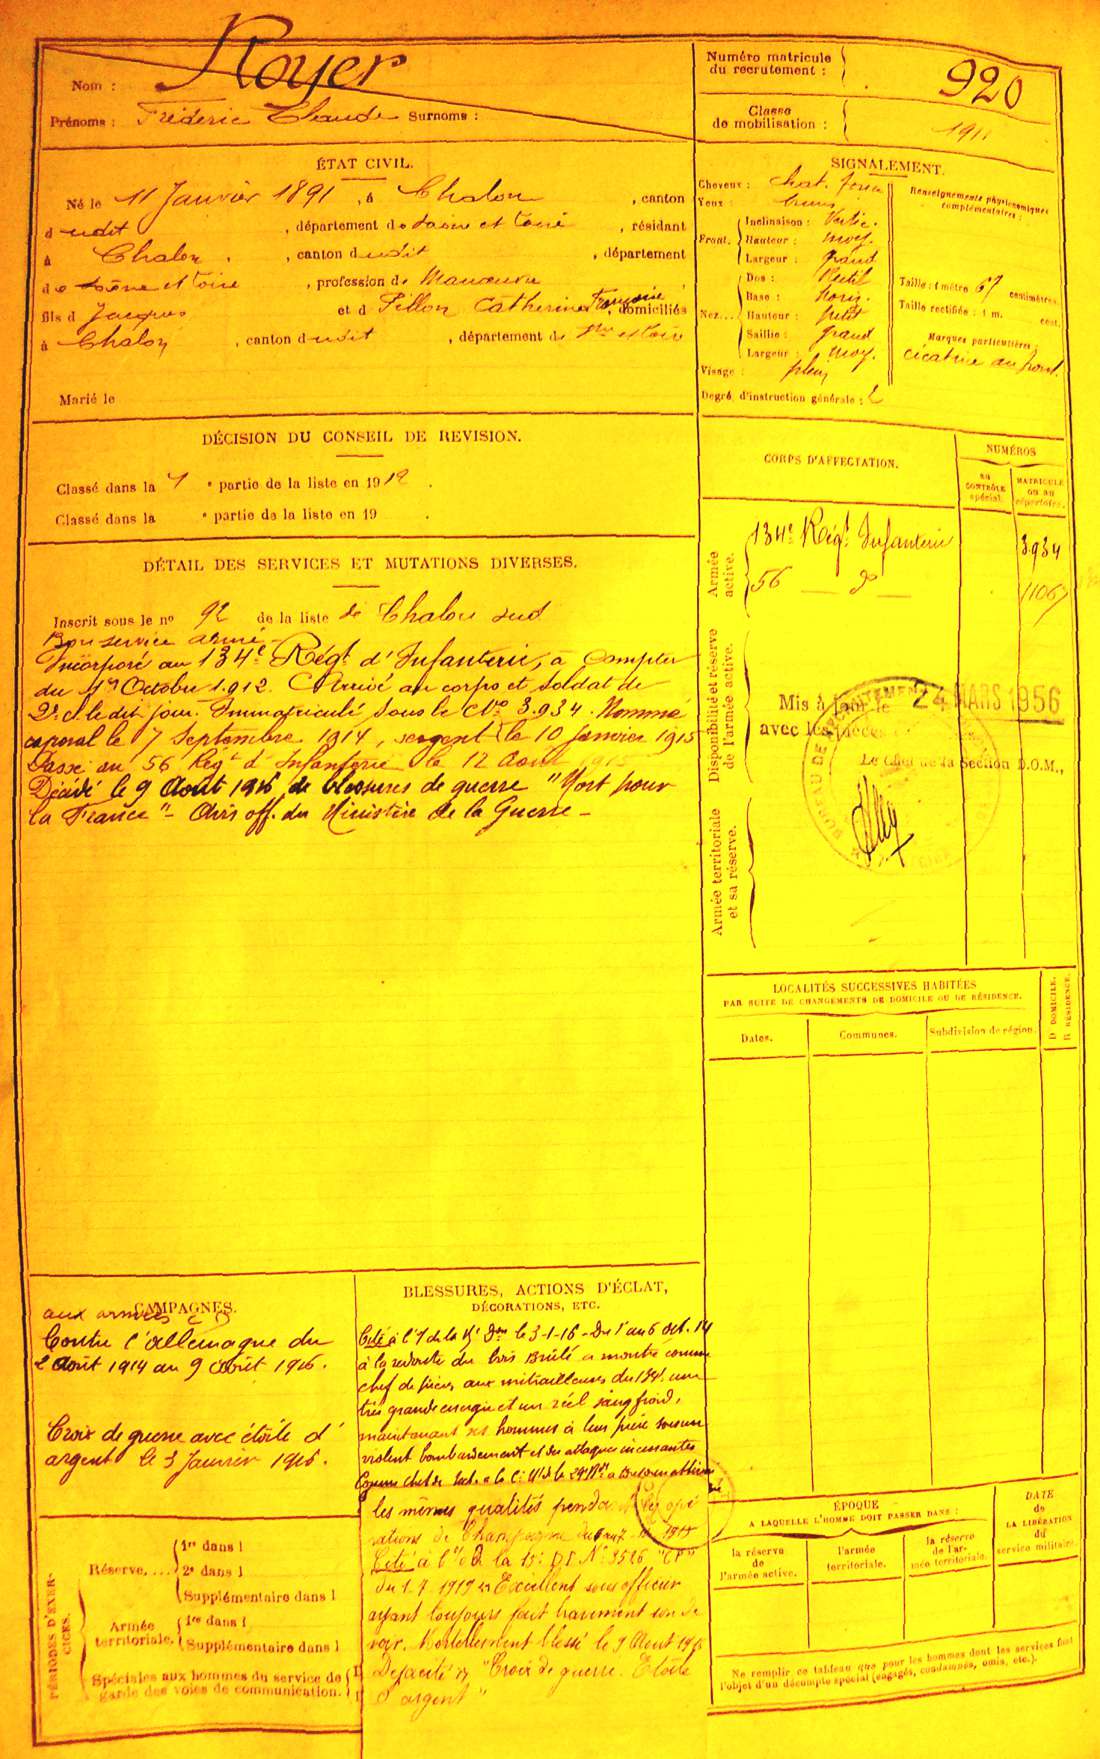 Nom : Royer
Prénoms : Frédéric Claude Surnoms :
Numéro matricule
du recrutement : 920
Classe
de mobilisation : 1911
ÉTAT CIVIL.
Né le 11 Janvier 1891, à Chalon, canton
dudit, département de Saône et Loire, résidant
à Chalon, canton dudit, département
de Saône et Loire, profession de Manœuvre
fils d Jacques et d Pillon Catherine Françoise, domiciliés
à Chalon, canton dudit, département de Sne et Loire
Marié le
SIGNALEMENT.
Cheveux : chat. foncé
Yeux :
Front. Inclinaison : Vertic.
Hauteur : moy.
Largeur : grand
Nez... Dos : Rectil
Base : horiz.
Hauteur : petit
Saillie : grand
Largeur : moy.
Visage : plein
Renseignements physionomiques
complémentaires :
Taille : 1 mètre 67 centimètres.
Taille rectifiée : 1 m. cent.
Marques particulières :
cicatrice au front.
Degré d'instruction générale : 2
DÉCISION DU CONSEIL DE REVISION.
Classé dans la 1 e partie de la liste en 1912.
Classé dans la e partie de la liste en 19 .
DÉTAIL DES SERVICES ET MUTATIONS DIVERSES.
Inscrit sous le no 92 de la liste de Chalon sud
Bon service armé
Incorporé au 134e Régt d'Infanterie, à compter
du 1er Octobre 1912. Arrivé au corps et soldat de
2e cl. le dit jour. Immatriculé sous le No 3.934. Nommé
caporal le 7 Septembre 1914, sergent le 10 janvier 1915
Passé au 56 Régt d'Infanterie le 12 Août 1915
Décédé le 9 Août 1916 de blessures de guerre "Mort pour
la France" - Avis off. du Ministère de la Guerre -
CORPS D'AFFECTATION.
NUMÉROS
AU
CONTRÔLE
spécial.
MATRICULE
OU AU
répertoire.
Armée
active.
134e Régt Infanterie 3.934
56 do
Disponibilité et réserve
de l'armée active.
Mis à jour le 24 MARS 1956
avec les pièces
Le Chef de la Section D.O.M.,
Armée territoriale
et sa réserve.
LOCALITÉS SUCCESSIVES HABITÉES
PAR SUITE DE CHANGEMENTS DE DOMICILE OU DE RÉSIDENCE.
Dates.
Communes.
Subdivision de région.
D DOMICILE.
R RÉSIDENCE.
CAMPAGNES.
aux armées
Contre l'allemagne du
2 Août 1914 au 9 Août 1916.
Croix de guerre avec étoile d'
argent le 3 Janvier 1916.
BLESSURES, ACTIONS D'ÉCLAT,
DÉCORATIONS, ETC.
Cité à l'O de la 15e Don le 3-1-16 - Du 1er au 6 oct. 14
à la redoute du bois Brûlé a montré comme
chef de pièce aux mitrailleuses du 134e une
très grande energie et un réel sang froid,
maintenant ses hommes à leur pièce sous un
violent bombardement et des attaques incessantes
Comme chef de Sect.
les mêmes qualités pendant les opé
rations de Champagne 1915
Cité à l'O de la 15e D.I. No 3526 "CP"
du 1.7.1919 Excellent sous officier
ayant toujours fait bravement son de
voir. Mortellement blessé le 9 Aout 1916
"Croix de guerre. Etoile
d'argent"
PÉRIODES D'EXER-
CICES.
Réserve..... 1re dans l
2e dans l
Supplémentaire dans l
Armée
territoriale. 1re dans l
Supplémentaire dans l
Spéciales aux hommes du service de
garde des voies de communication.
ÉPOQUE
A LAQUELLE L'HOMME DOIT PASSER DANS :
la réserve
de
l'armée active.
l'armée
territoriale.
la réserve
de l'ar-
mée territoriale.
DATE
de
LA LIBÉRATION
du
service militaire.
Ne remplir ce tableau que pour les hommes dont les services font
l'objet d'un décompte spécial (engagés, condamnés, omis, etc.).